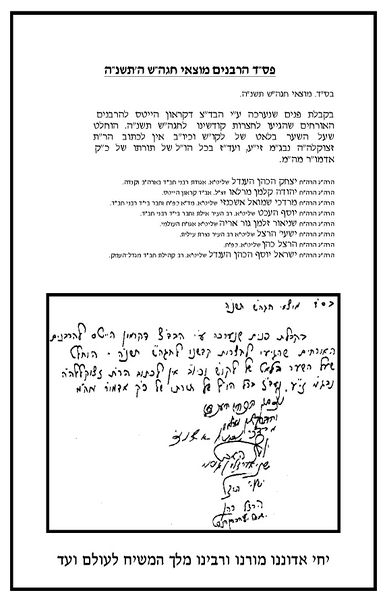 פס״ד הרבנים מוצאי חגה״ש ה׳תשנ״ה
בס״ד. מוצאי חגה״ש תשנ״ה.
בקבלת פנים שנערכה ע״י הבד״צ דקראון הייטס להרבנים
האורחים שהגיעו לחצרות קודשינו לחגה״ש תשנ״ה. הוחלט
שעל השער בלאט של לקו״ש וכיו״ב אין לכתוב הר״ת
זצוקללה״ה נבג״מ זי״ע, ועד״ז בכל הו״ל של תורתו של כ״ק
אדמו״ר מה״מ.
הרה״ג הרה״ח יצחק הכהן הענדל שליט״א. אגודת רבני חב״ד בארה״ב וקנדה.
הרה״ג הרה״ח יהודה קלמן מרלאו זצ״ל. אב״ד קראון הייטס.
הרה״ג הרה״ח מרדכי שמואל אשכנזי שליט״א. מד״א כפ״ח וחבר בי״ד רבני חב״ד.
הרה״ג הרה״ח יוסף העכט שליט״א. רב העיר אילת וחבר בי״ד רבני חב״ד.
הרה״ג הרה״ח שניאור זלמן גור אריה שליט״א. אגו״ח העולמי.
הרה״ג הרה״ח ישעי׳ הרצל שליט״א רב העיר נצרת עילית.
הרה״ג הרה״ח הרצל כהן שליט״א. כפ״ח.
הרה״ג הרה״ח ישראל יוסף הכהן הענדל שליט״א. רב קהילת חב״ד מגדל העמק.
בס״ד מוצאי חגה״ש תשנ״ה
בקבלת פנים שנערכה ע״י הבד״צ דקראון הייטס להרבנים
האורחים שהגיעו לחצרות קדשנו לחגה״ש תשנ״ה - הוחלט
שעל השער בלאט של לקו״ש וכיו״ב אין לכתוב הר״ת זצוקללה״ה
נבג״מ זי״ע, ועד״ז בכל הו״ל של תורתו של כ״ק אדמו״ר מה״מ
יצחק הכהן הענדל
מרדכי שמואל אשכנזי
ישעי׳ הרצל
הרצל כהן
יחי אדוננו מורנו ורבינו מלך המשיח לעולם ועד